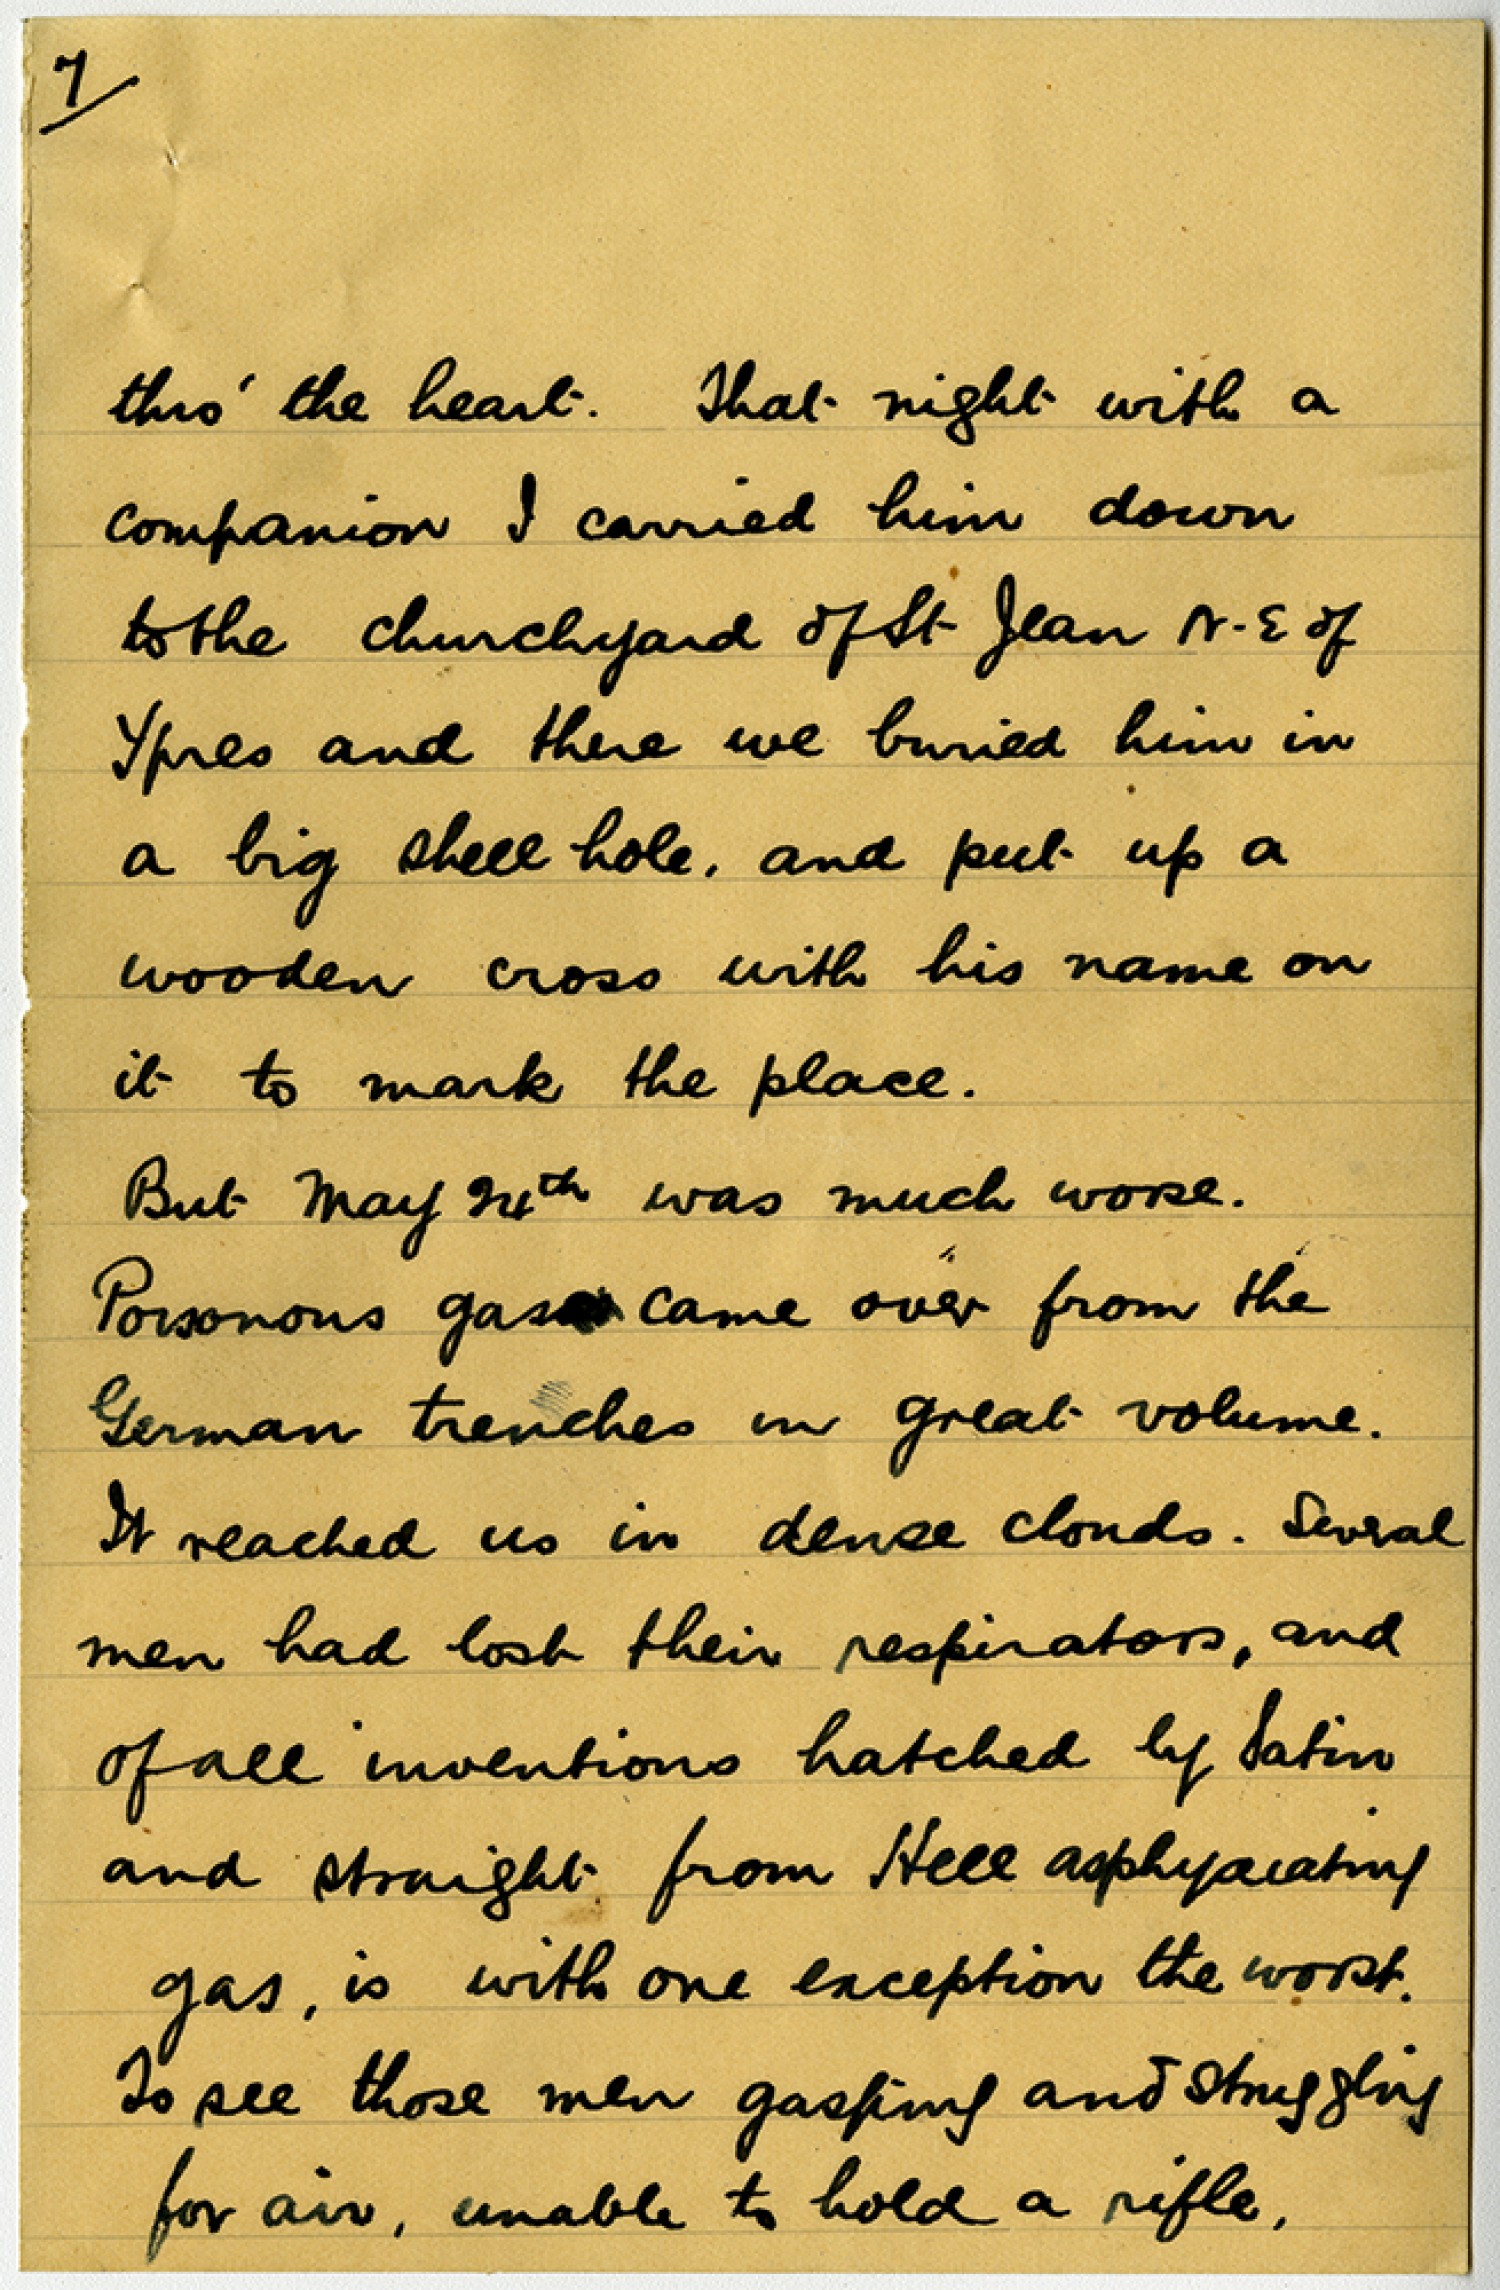 7
thro' the heart. That night with a
companion I carried him down
to the churchyard of St Jean N-E of
Ypres and there we buried him in
a big shell hole, and put up a
wooden cross with his name on
it to mark the place.
But May 24th was much worse.
Poisonous gas came over from the
German trenches in great volume.
It reached us in dense clouds. Several
men had lost their respirators, and
of all inventions hatched by Satin
and straight from Hell asphyxiating
gas, is with one exception the worst.
To see those men gasping and struggling
for air, unable to hold a rifle,